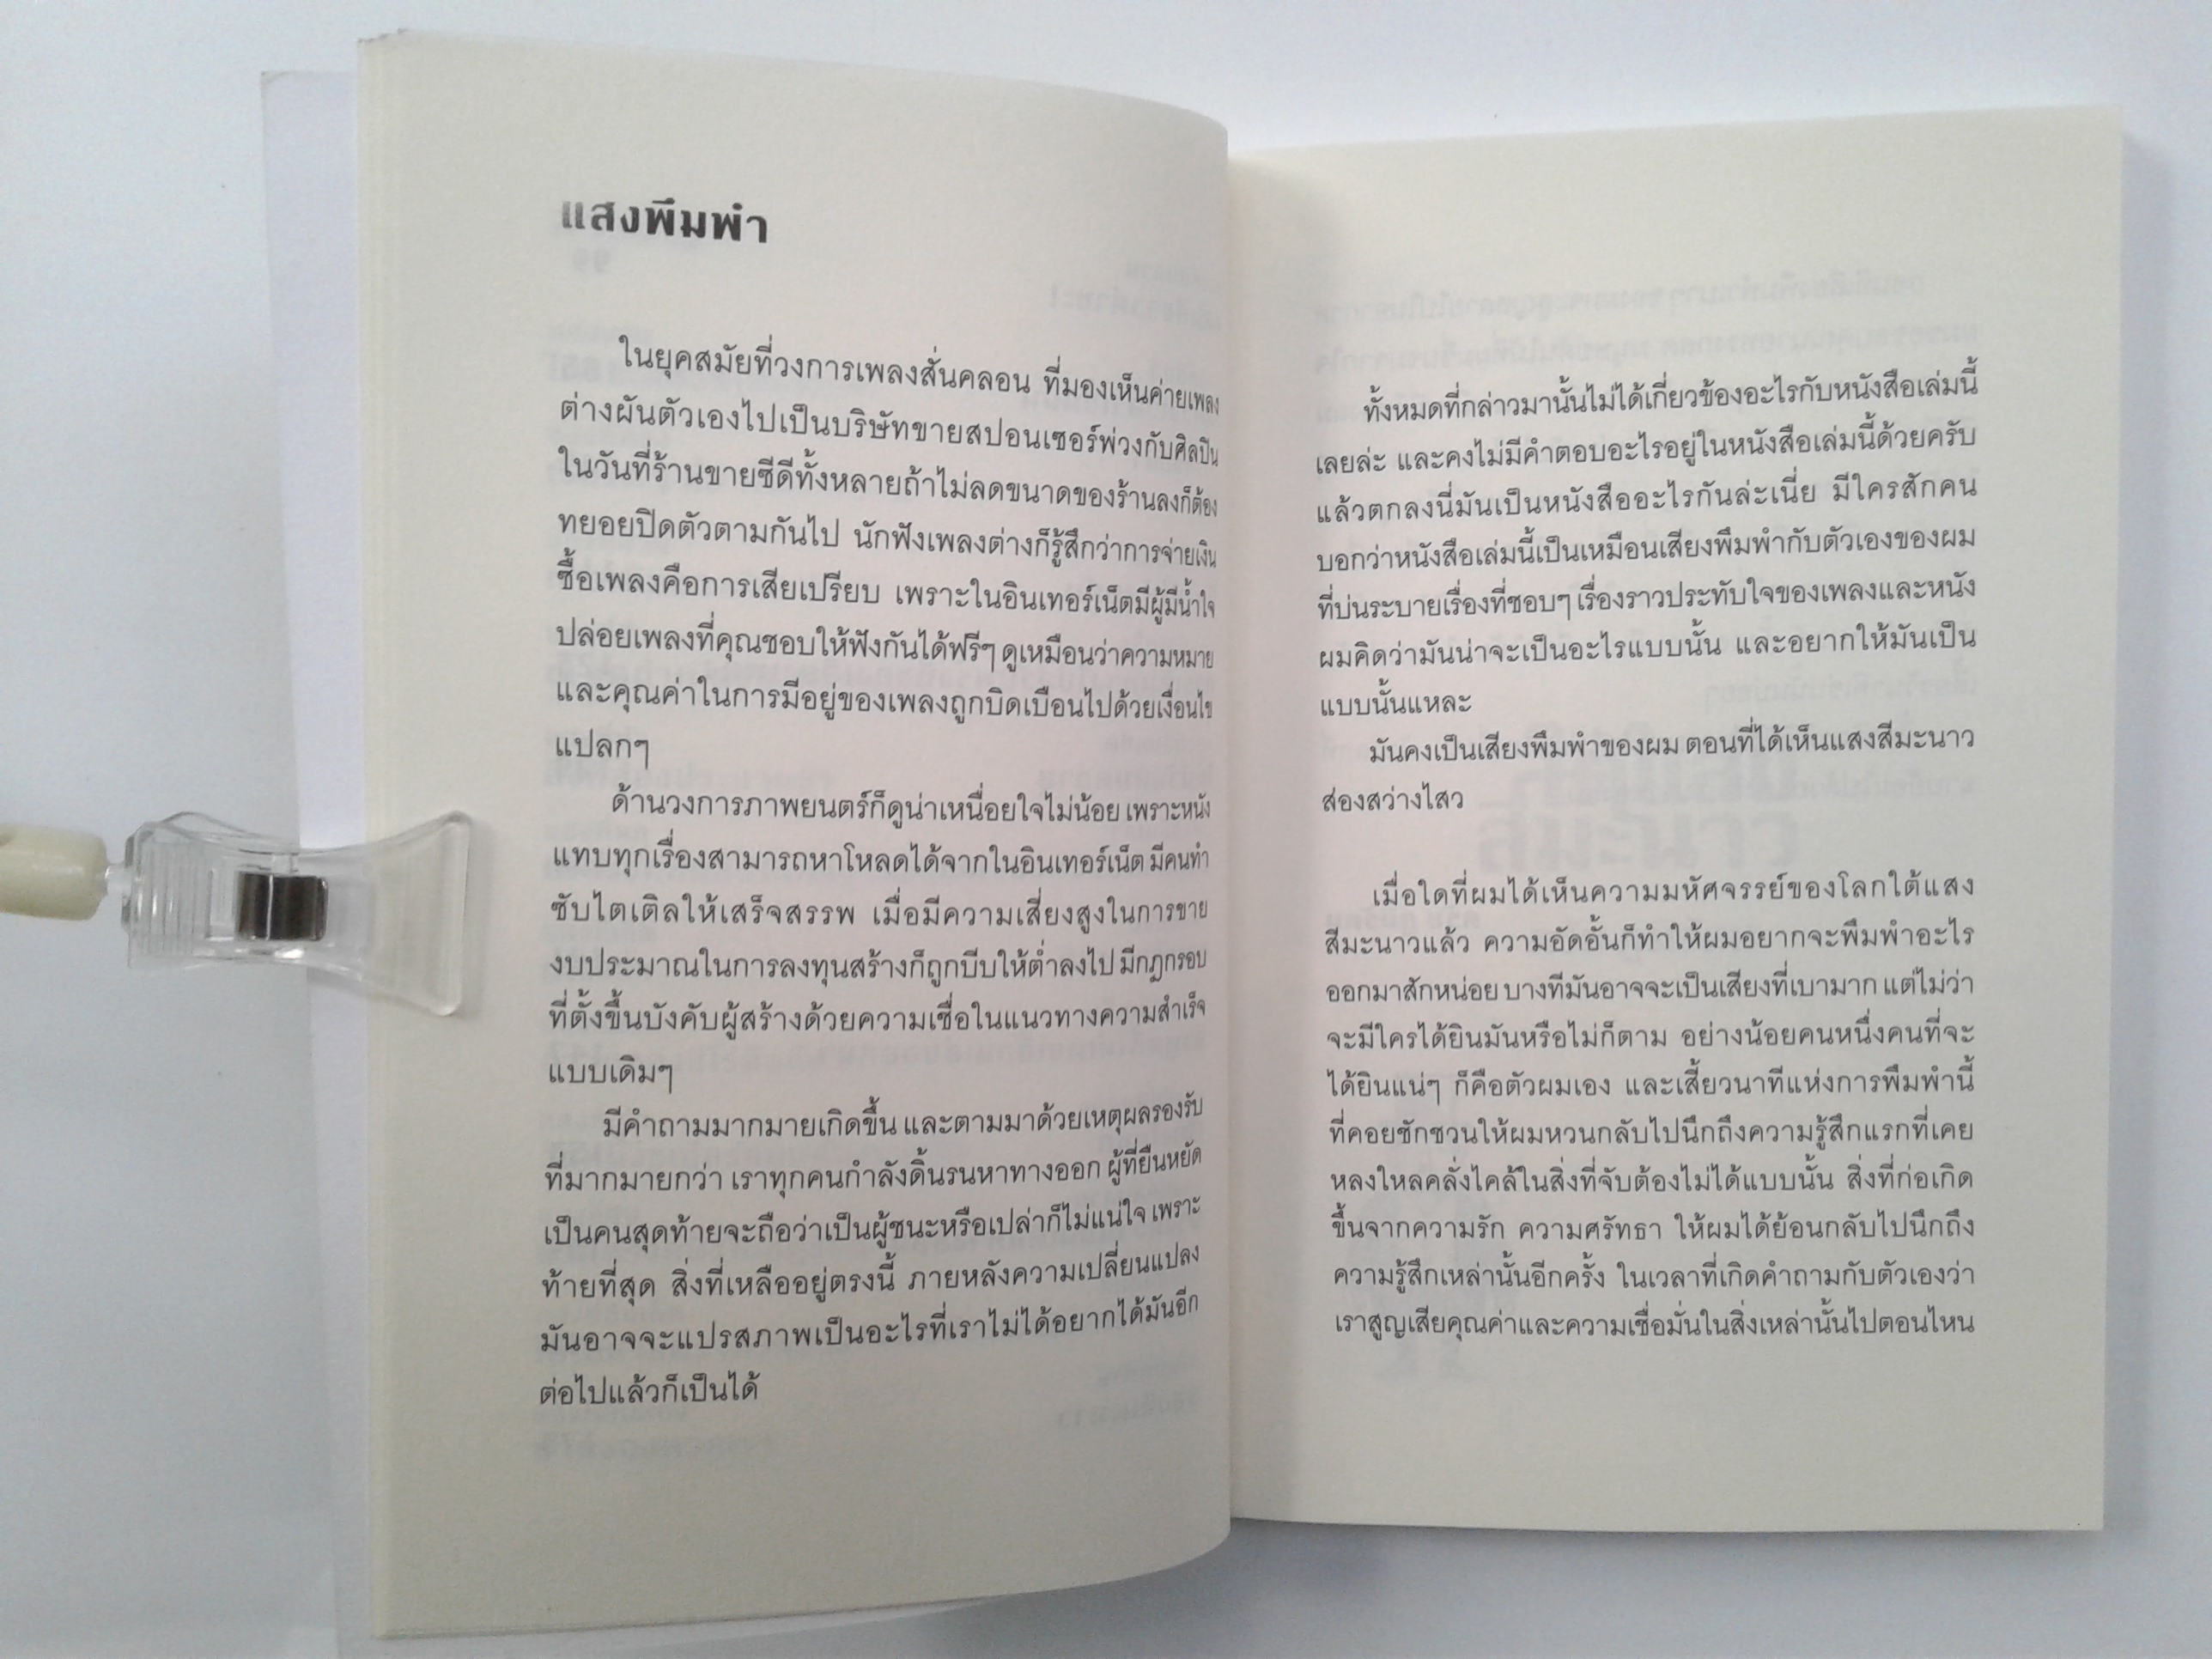 แสงพึมพำ
ในยุคสมัยที่วงการเพลงสั่นคลอน ที่มองเห็นค่ายเพลง
ต่างผันตัวเองไปเป็นบริษัทขายสปอนเซอร์พ่วงกับศิลปิน
ในวันที่ร้านขายซีดีทั้งหลายถ้าไม่ลดขนาดของร้านลงก็ต้อง
ทยอยปิดตัวตามกันไป นักฟังเพลงต่างก็รู้สึกว่าการจ่ายเงิน
ซื้อเพลงคือการเสียเปรียบ เพราะในอินเทอร์เน็ตมีผู้มีน้ำใจ
ปล่อยเพลงที่คุณชอบให้ฟังกันได้ฟรีๆ ดูเหมือนว่าความหมาย
และคุณค่าในการมีอยู่ของเพลงถูกบิดเบือนไปด้วยเงื่อนไข
แปลกๆ
ด้านวงการภาพยนตร์ก็ดูน่าเหนื่อยใจไม่น้อย เพราะหนัง
แทบทุกเรื่องสามารถหาโหลดได้จากในอินเทอร์เน็ต มีคนทำ
ซับไตเติลให้เสร็จสรรพ เมื่อมีความเสี่ยงสูงในการขาย
งบประมาณในการลงทุนสร้างก็ถูกบีบให้ต่ำลงไป มีกฎกรอบ
ที่ตั้งขึ้นบังคับผู้สร้างด้วยความเชื่อในแนวทางความสำเร็จ
แบบเดิมๆ
มีคำถามมากมายเกิดขึ้น และตามมาด้วยเหตุผลรองรับ
ที่มากมายกว่า เราทุกคนกำลังดิ้นรนหาทางออก ผู้ที่ยืนหยัด
เป็นคนสุดท้ายจะถือว่าเป็นผู้ชนะหรือเปล่าก็ไม่แน่ใจ เพราะ
ท้ายที่สุด สิ่งที่เหลืออยู่ตรงนี้ ภายหลังความเปลี่ยนแปลง
มันอาจจะแปรสภาพเป็นอะไรที่เราไม่ได้อยากได้มันอีก
ต่อไปแล้วก็เป็นได้
ทั้งหมดที่กล่าวมานั้นไม่ได้เกี่ยวข้องอะไรกับหนังสือเล่มนี้
เลยล่ะ และคงไม่มีคำตอบอะไรอยู่ในหนังสือเล่มนี้ด้วยครับ
แล้วตกลงนี่มันเป็นหนังสืออะไรกันล่ะเนี่ย มีใครสักคน
บอกว่าหนังสือเล่มนี้เป็นเหมือนเสียงพึมพำกับตัวเองของผม
ที่บ่นระบายเรื่องที่ชอบๆ เรื่องราวประทับใจของเพลงและหนัง
ผมคิดว่ามันน่าจะเป็นอะไรแบบนั้น และอยากให้มันเป็น
แบบนั้นแหละ
มันคงเป็นเสียงพึมพำของผม ตอนที่ได้เห็นแสงสีมะนาว
ส่องสว่างไสว
เมื่อใดที่ผมได้เห็นความมหัศจรรย์ของโลกใต้แสง
สีมะนาวแล้ว ความอัดอั้นก็ทำให้ผมอยากจะพึมพำอะไร
ออกมาสักหน่อย บางทีมันอาจจะเป็นเสียงที่เบามาก แต่ไม่ว่า
จะมีใครได้ยินมันหรือไม่ก็ตาม อย่างน้อยคนหนึ่งคนที่จะ
ได้ยินแน่ๆ ก็คือตัวผมเอง และเสี้ยวนาทีแห่งการพึมพำนี้
ที่คอยชักชวนให้ผมหวนกลับไปนึกถึงความรู้สึกแรกที่เคย
หลงใหลคลั่งไคล้ในสิ่งที่จับต้องไม่ได้แบบนั้น สิ่งที่ก่อเกิด
ขึ้นจากความรัก ความศรัทธา ให้ผมได้ย้อนกลับไปนึกถึง
ความรู้สึกเหล่านั้นอีกครั้ง ในเวลาที่เกิดคำถามกับตัวเองว่า
เราสูญเสียคุณค่าและความเชื่อมั่นในสิ่งเหล่านั้นไปตอนไหน